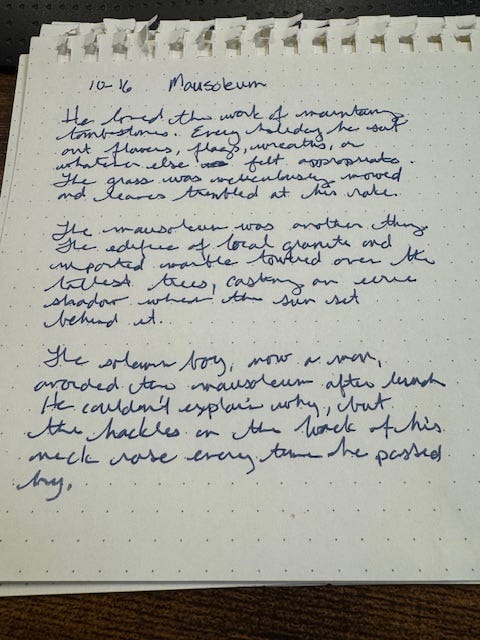 10-16 Mausoleum
He loved the work of maintaing
tombstones. Every holiday he set
out flowers, flags, wreaths, or
whatever else felt appropriate.
The grass was meticulously mowed
and leaves trembled at his rake.
The mausoleum was another thing
The edifice of local granite and
imported marble towered over the
tallest trees, casting an eerie
shadow when the sun set
behind it.
The solemn boy, now a man,
avoided the mausoleum after lunch
He couldn't explain why, but
the hackles on the back of his
neck rose every time he passed
by.